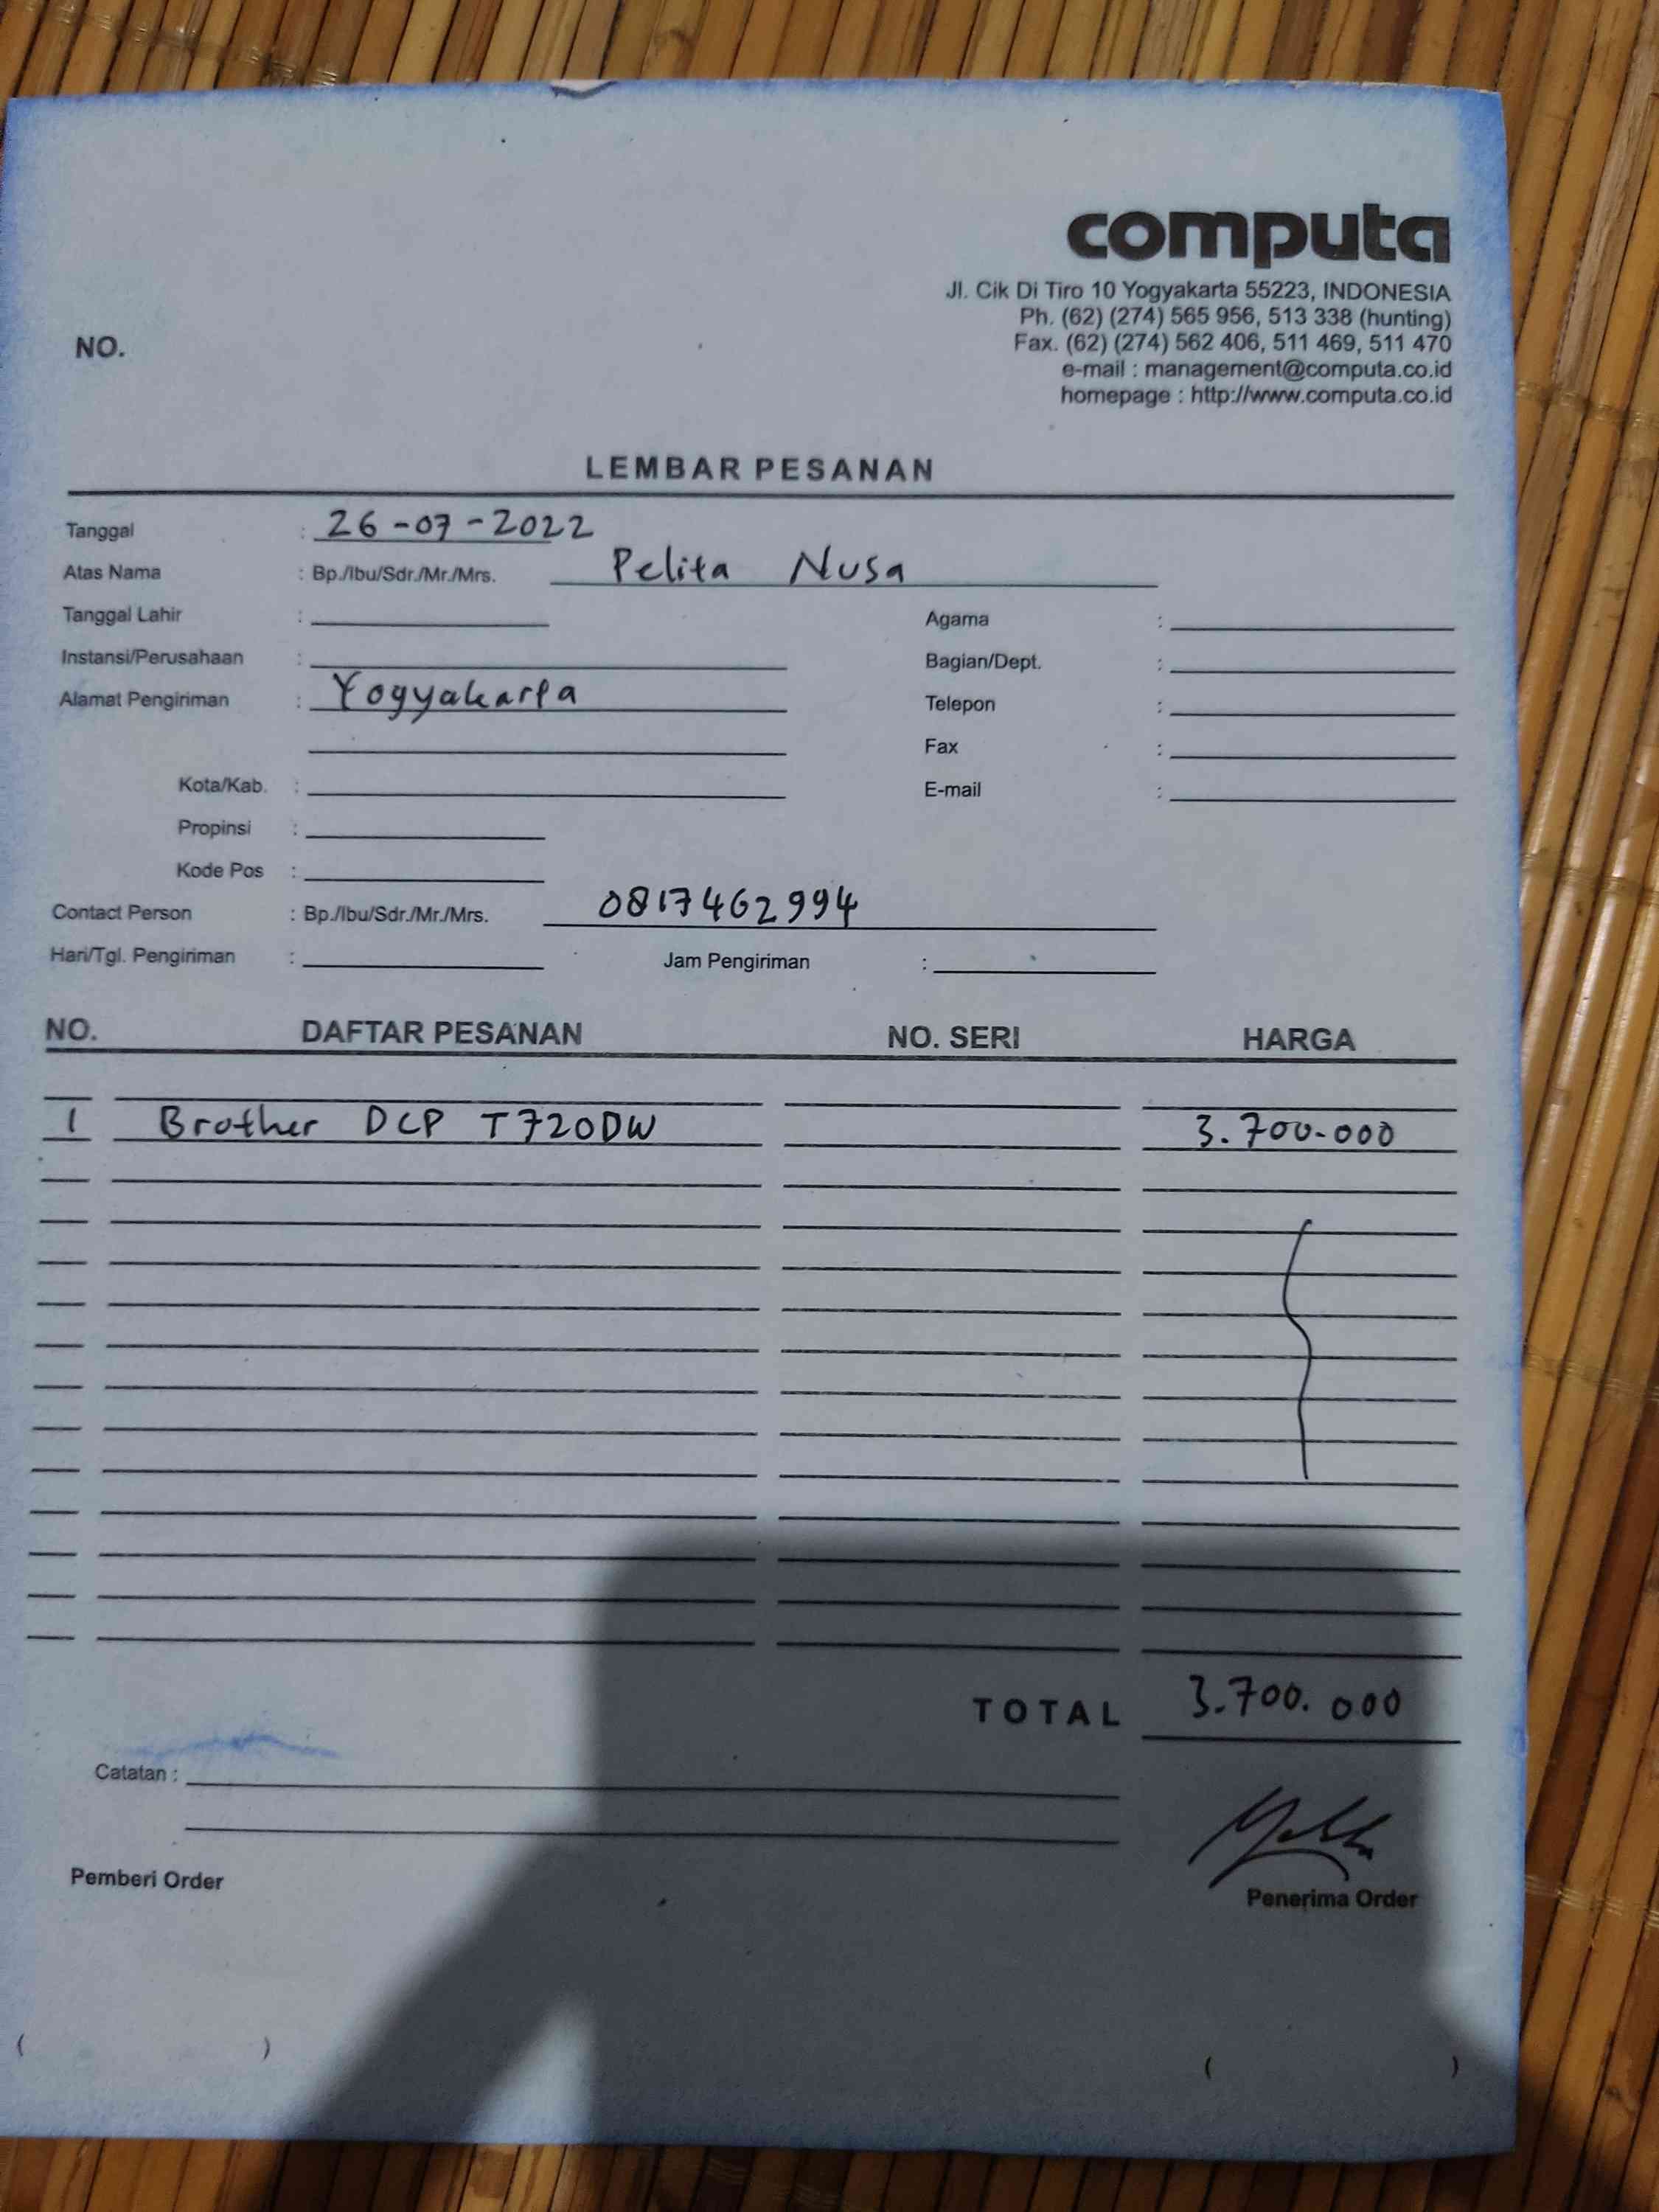 computa
Jl. Cik Di Tiro 10 Yogyakarta 55223, INDONESIA
Ph. (62) (274) 565 956, 513 338 (hunting)
Fax. (62) (274) 562 406, 511 469, 511 470
e-mail : management@computa.co.id
homepage : http://www.computa.co.id
NO.
LEMBAR PESANAN
Tanggal : 26-07-2022
Atas Nama : Bp./Ibu/Sdr./Mr./Mrs. Pelita Nusa
Tanggal Lahir : Agama :
Instansi/Perusahaan : Bagian/Dept. :
Alamat Pengiriman : Yogyakarta Telepon :
Fax :
Kota/Kab. : E-mail :
Propinsi :
Kode Pos :
Contact Person : Bp./Ibu/Sdr./Mr./Mrs. 0817462994
Hari/Tgl. Pengiriman : Jam Pengiriman :
NO. DAFTAR PESANAN NO. SERI HARGA
1 Brother DCP T720DW 3.700.000
TOTAL 3.700.000
Catatan :
Pemberi Order Penerima Order
( ) ( )